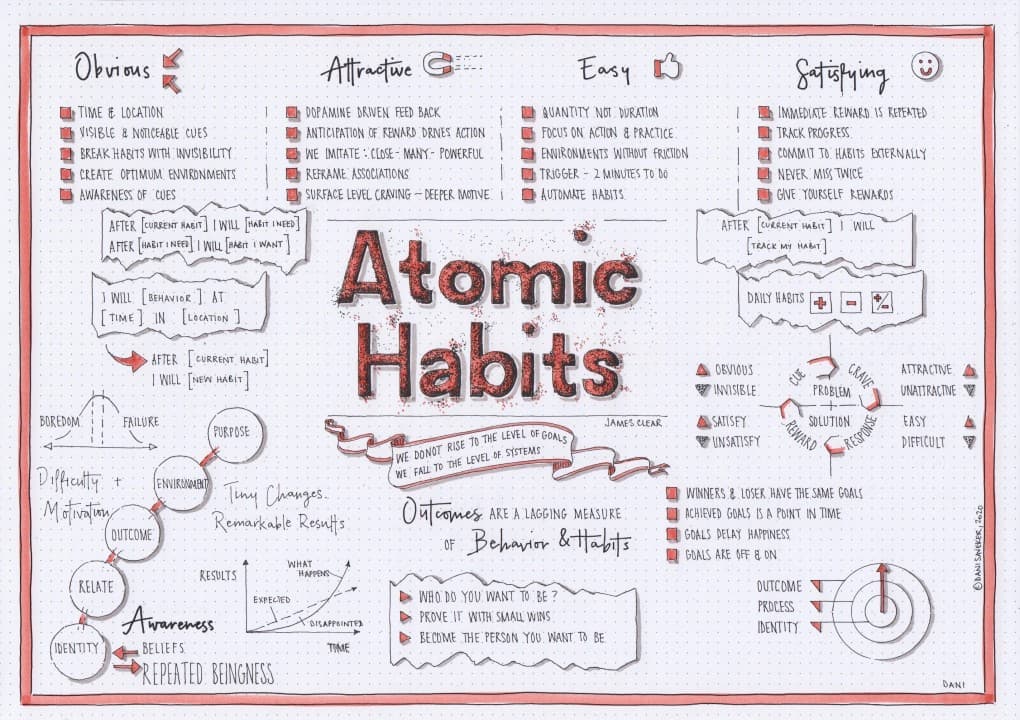 Obvious
TIME & LOCATION
VISIBLE & NOTICEABLE CUES
BREAK HABITS WITH INVISIBILITY
CREATE OPTIMUM ENVIRONMENTS
AWARENESS OF CUES
Attractive
DOPAMINE DRIVEN FEED BACK
ANTICIPATION OF REWARD DRIVES ACTION
WE IMITATE : CLOSE - MANY - POWERFUL
REFRAME ASSOCIATIONS
SURFACE LEVEL CRAVING - DEEPER MOTIVE
Easy
QUANTITY NOT DURATION
FOCUS ON ACTION & PRACTICE
ENVIRONMENTS WITHOUT FRICTION
TRIGGER - 2 MINUTES TO DO
AUTOMATE HABITS
Satisfying
IMMEDIATE REWARD IS REPEATED
TRACK PROGRESS
COMMIT TO HABITS EXTERNALLY
NEVER MISS TWICE
GIVE YOURSELF REWARDS
AFTER [CURRENT HABIT] I WILL [HABIT I NEED]
AFTER [HABIT I NEED] I WILL [HABIT I WANT]
I WILL [BEHAVIOR] AT
[TIME] IN [LOCATION]
AFTER [CURRENT HABIT]
I WILL [NEW HABIT]
Atomic
Habits
JAMES CLEAR
WE DO NOT RISE TO THE LEVEL OF GOALS
WE FALL TO THE LEVEL OF SYSTEMS
AFTER [CURRENT HABIT] I WILL
[TRACK MY HABIT]
DAILY HABITS + - +/-
OBVIOUS
INVISIBLE
SATISFY
UNSATISFY
CUE
CRAVE
PROBLEM
SOLUTION
REWARD
RESPONSE
ATTRACTIVE
UNATTRACTIVE
EASY
DIFFICULT
BOREDOM
FAILURE
Difficulty +
Motivation
PURPOSE
ENVIRONMENT
OUTCOME
RELATE
IDENTITY
Tiny Changes.
Remarkable Results
RESULTS
WHAT
HAPPENS
EXPECTED
DISAPPOINTED
TIME
Awareness
BELIEFS
REPEATED BEINGNESS
Outcomes ARE A LAGGING MEASURE
OF Behavior & Habits
WHO DO YOU WANT TO BE ?
PROVE IT WITH SMALL WINS
BECOME THE PERSON YOU WANT TO BE
WINNERS & LOSER HAVE THE SAME GOALS
ACHIEVED GOALS IS A POINT IN TIME
GOALS DELAY HAPPINESS
GOALS ARE OFF & ON
OUTCOME
PROCESS
IDENTITY
DANI